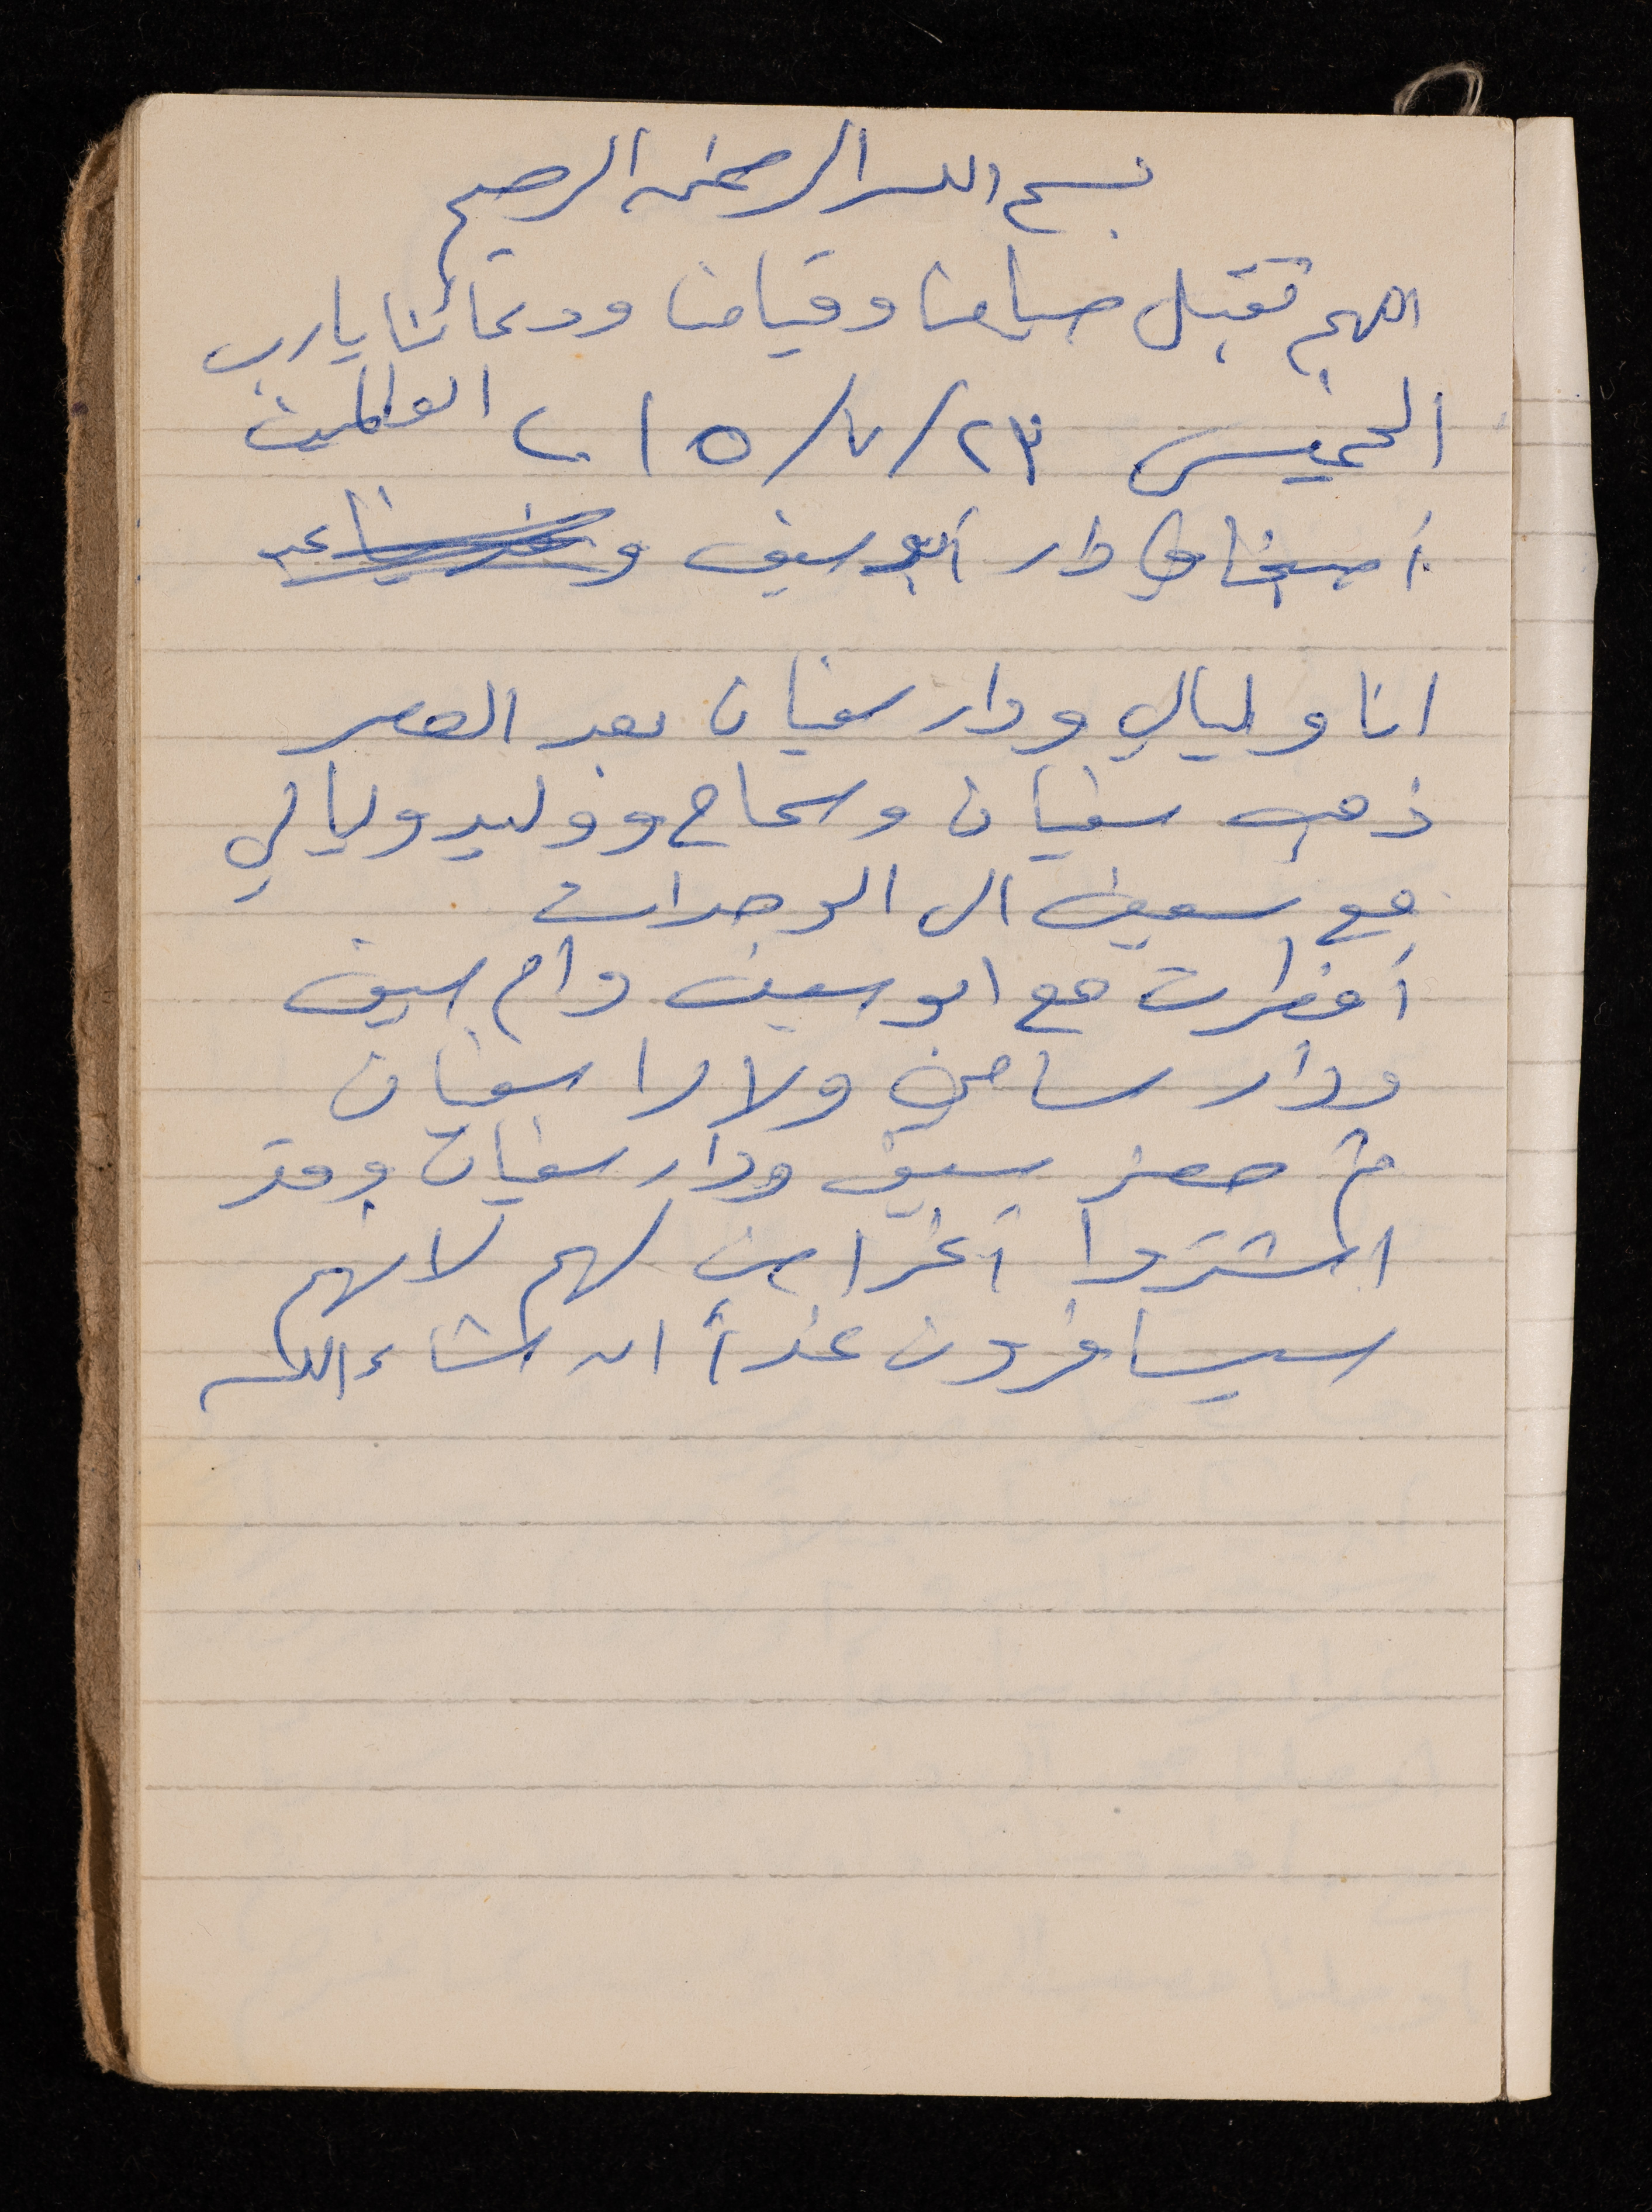 بسم الله الرحمن الرحيم
اللهم تقبل صيامنا وقيامنا ودعائنا يارب
الخميس ٢٣/٧/٢٠١٥ العالمين
أصبحنا في دار أبو سيف و
انا وليالي ودار سفيان بعد العصر
ذهب سفيان وسماح ووليد وليالي
مع سيف الى الوحدات
أفطرت مع ابو سيف وام سيف
ودار سامي ولارا سفيان
ثم حضر سيف ودار سفيان وقد
اشتروا أغراض لهم لانهم
سيسافرون غداً ان شاء الله